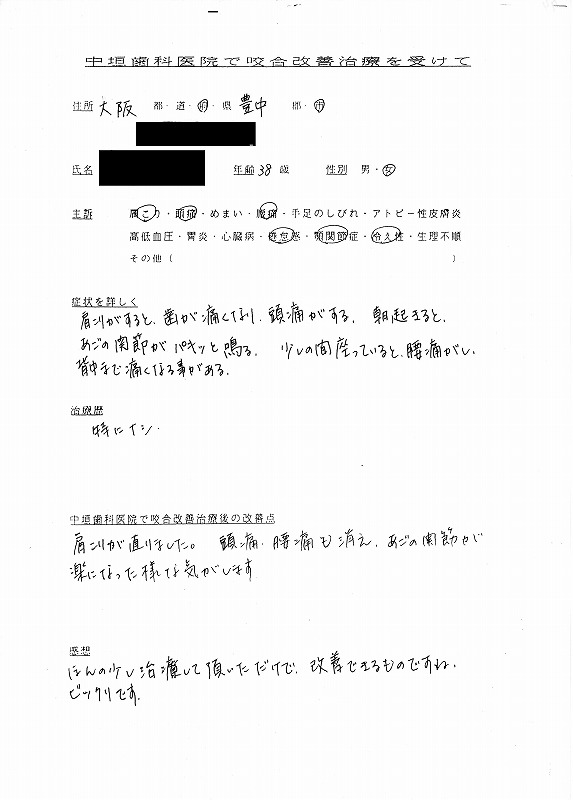 中垣歯科医院で咬合改善治療を受けて
住所 大阪 都・道・府・県 豊中 郡・市
氏名 年齢 38 歳 性別 男・女
主訴 肩こり・頭痛・めまい・腰痛・手足のしびれ・アトピー性皮膚炎
高低血圧・胃炎・心臓病・倦怠感・顎関節症・冷え性・生理不順
その他( )
症状を詳しく
肩こりがすると、歯が痛くなり、頭痛がする。 朝起きると、
あごの関節がパキッと鳴る。 少しの間座っていると、腰痛がし、
背中まで痛くなる事がある。
治療歴
特にナシ.
中垣歯科医院で咬合改善治療後の改善点
肩こりが直りました。 頭痛、腰痛も消え、あごの関節が
楽になった様な気がします
感想
ほんの少し治療して頂いただけで、改善できるものですね.
ビックリです.